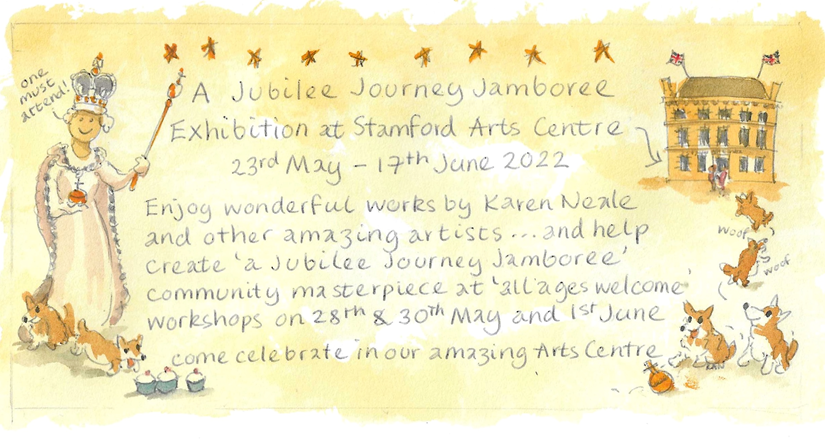 one
must
attend!
A Jubilee Journey Jamboree
Exhibition at Stamford Arts Centre
23rd May - 17th June 2022
Enjoy wonderful works by Karen Neale
and other amazing artists ... and help
create 'a Jubilee Journey Jamboree'
community masterpiece at 'all ages welcome'
workshops on 28th & 30th May and 1st June
come celebrate in our amazing Arts Centre
woof
woof